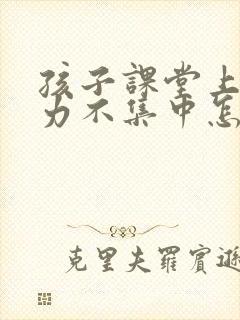 孩子課堂上
力不集中怎
克里夫羅賓遜